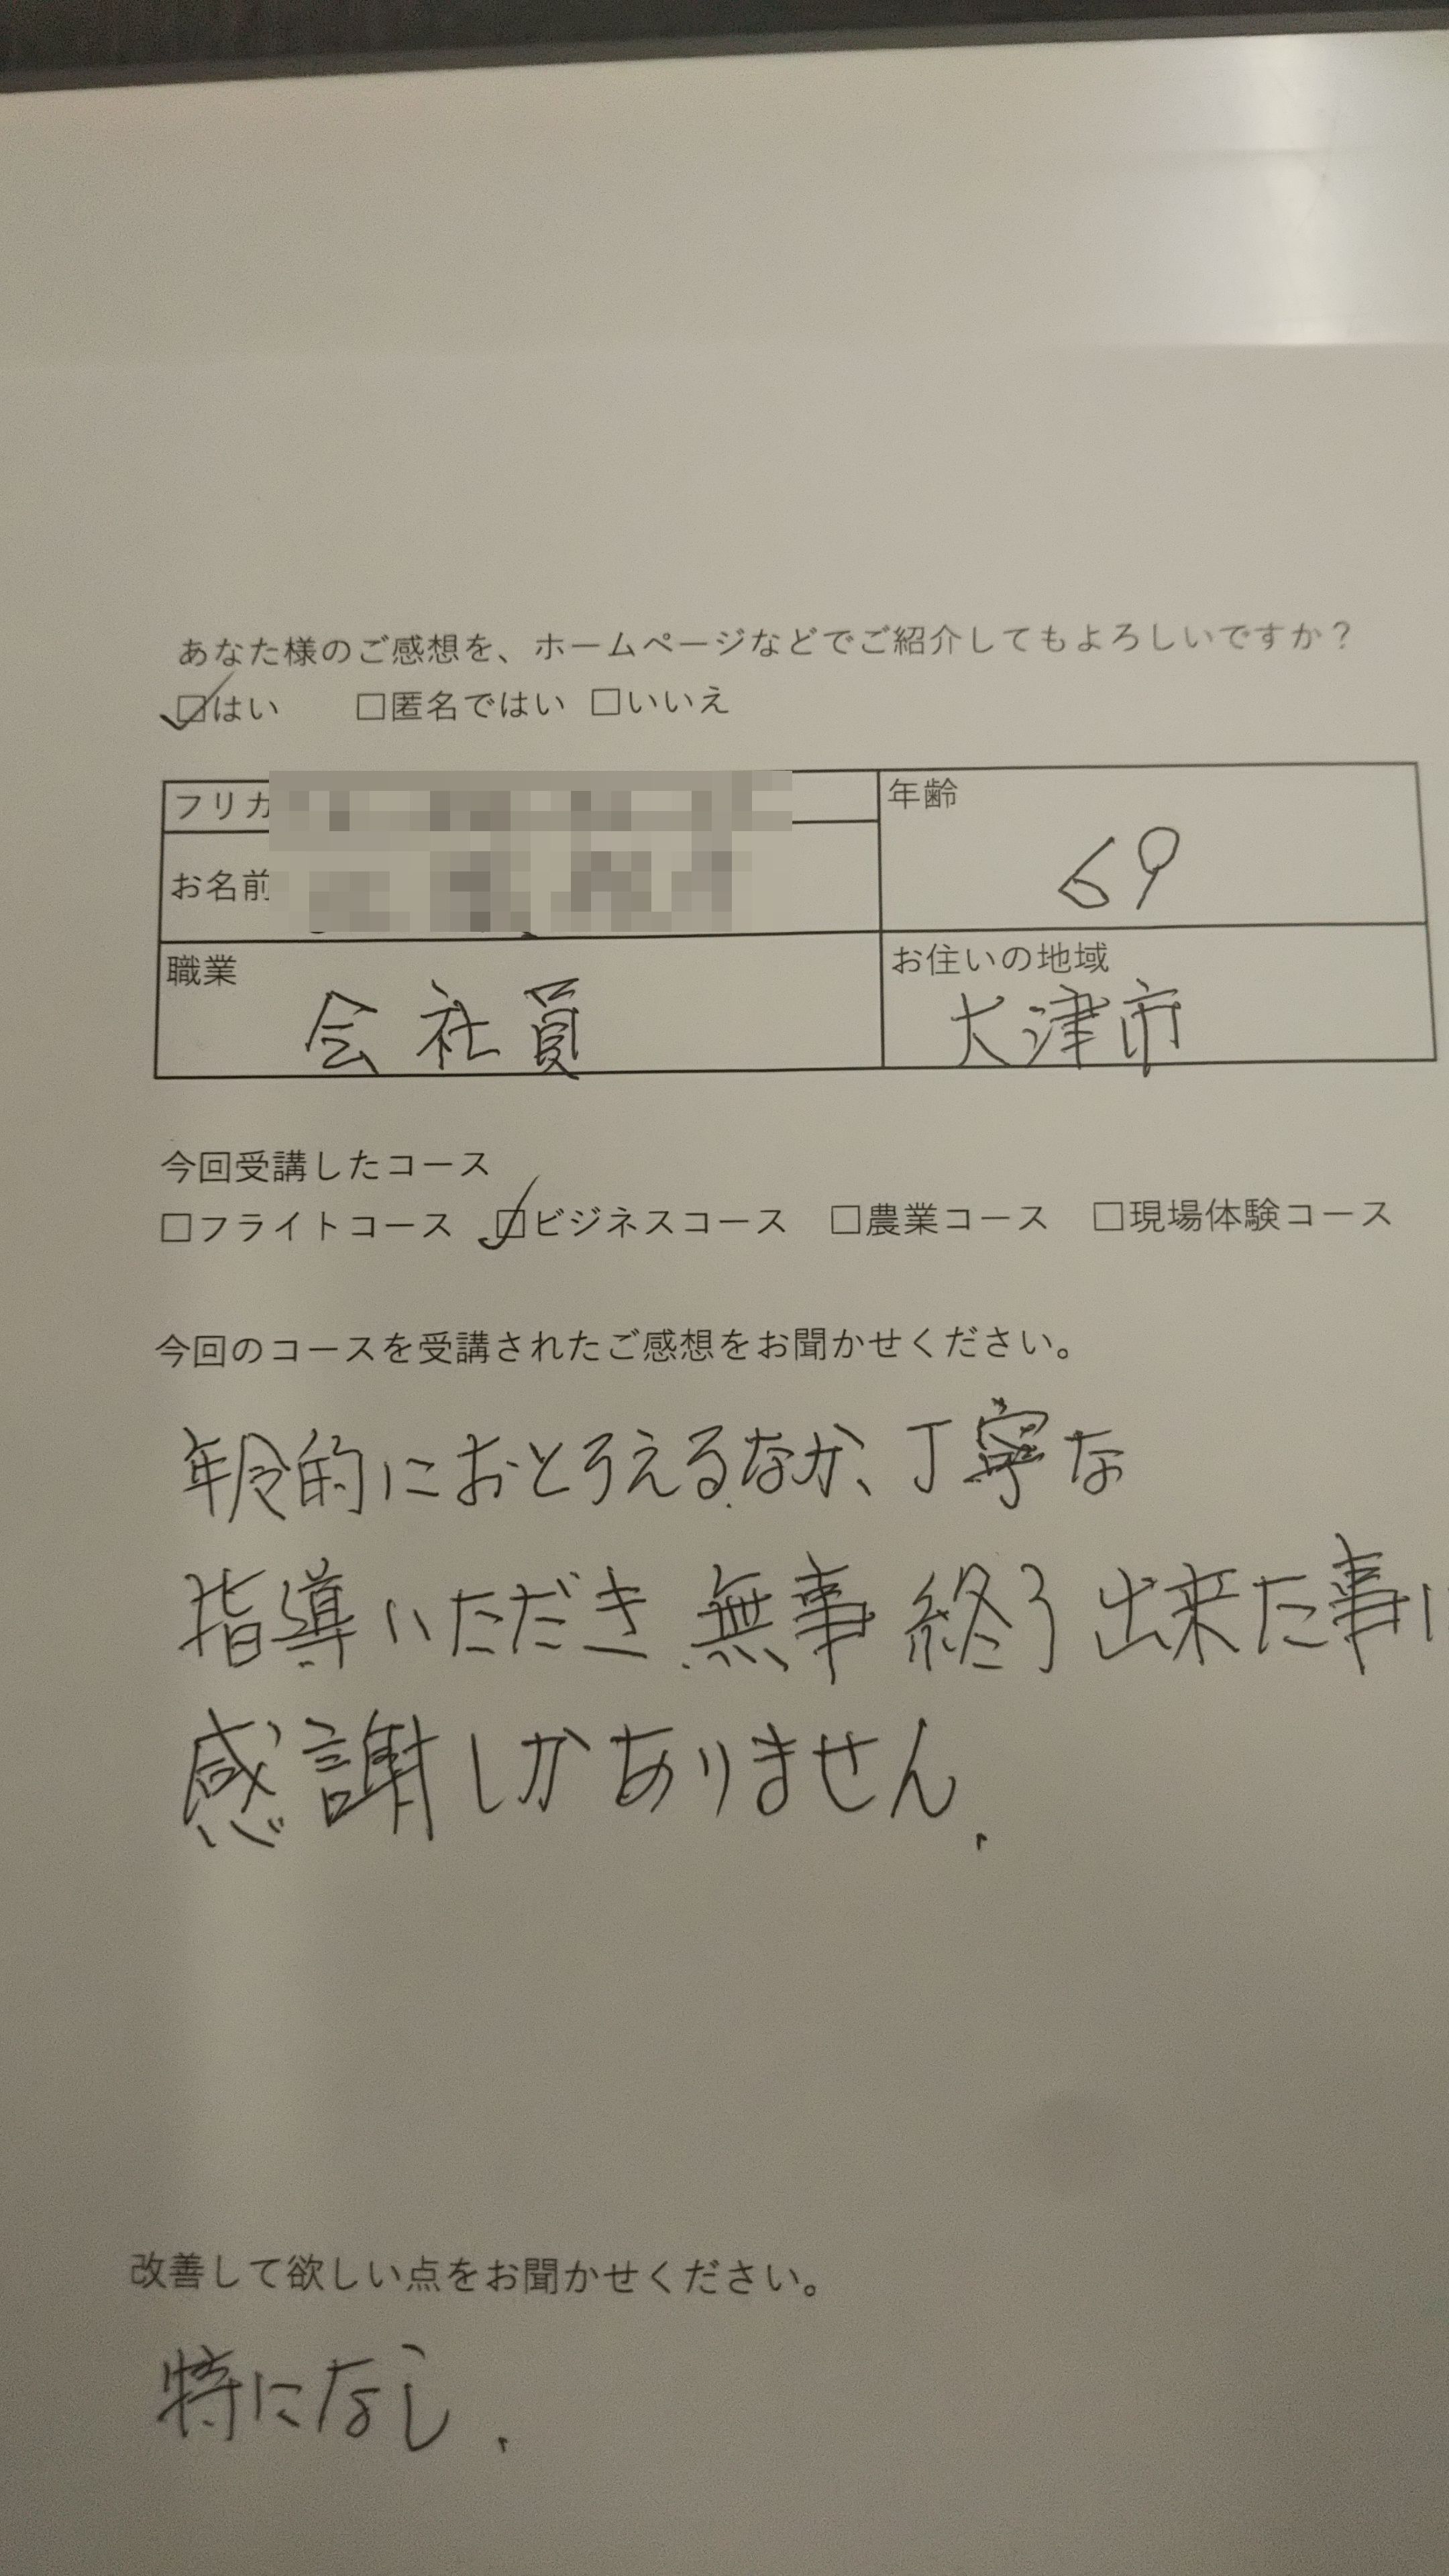 あなた様のご感想を、ホームページなどでご紹介してもよろしいですか？
☑はい □匿名ではい □いいえ
フリガ
お名前
年齢
69
職業
会社員
お住いの地域
大津市
今回受講したコース
□フライトコース ☑ビジネスコース □農業コース □現場体験コース
今回のコースを受講されたご感想をお聞かせください。
年令的におとろえるなか、丁寧な
指導いただき無事終了出来た事に
感謝しかありません.
改善して欲しい点をお聞かせください。
特になし.